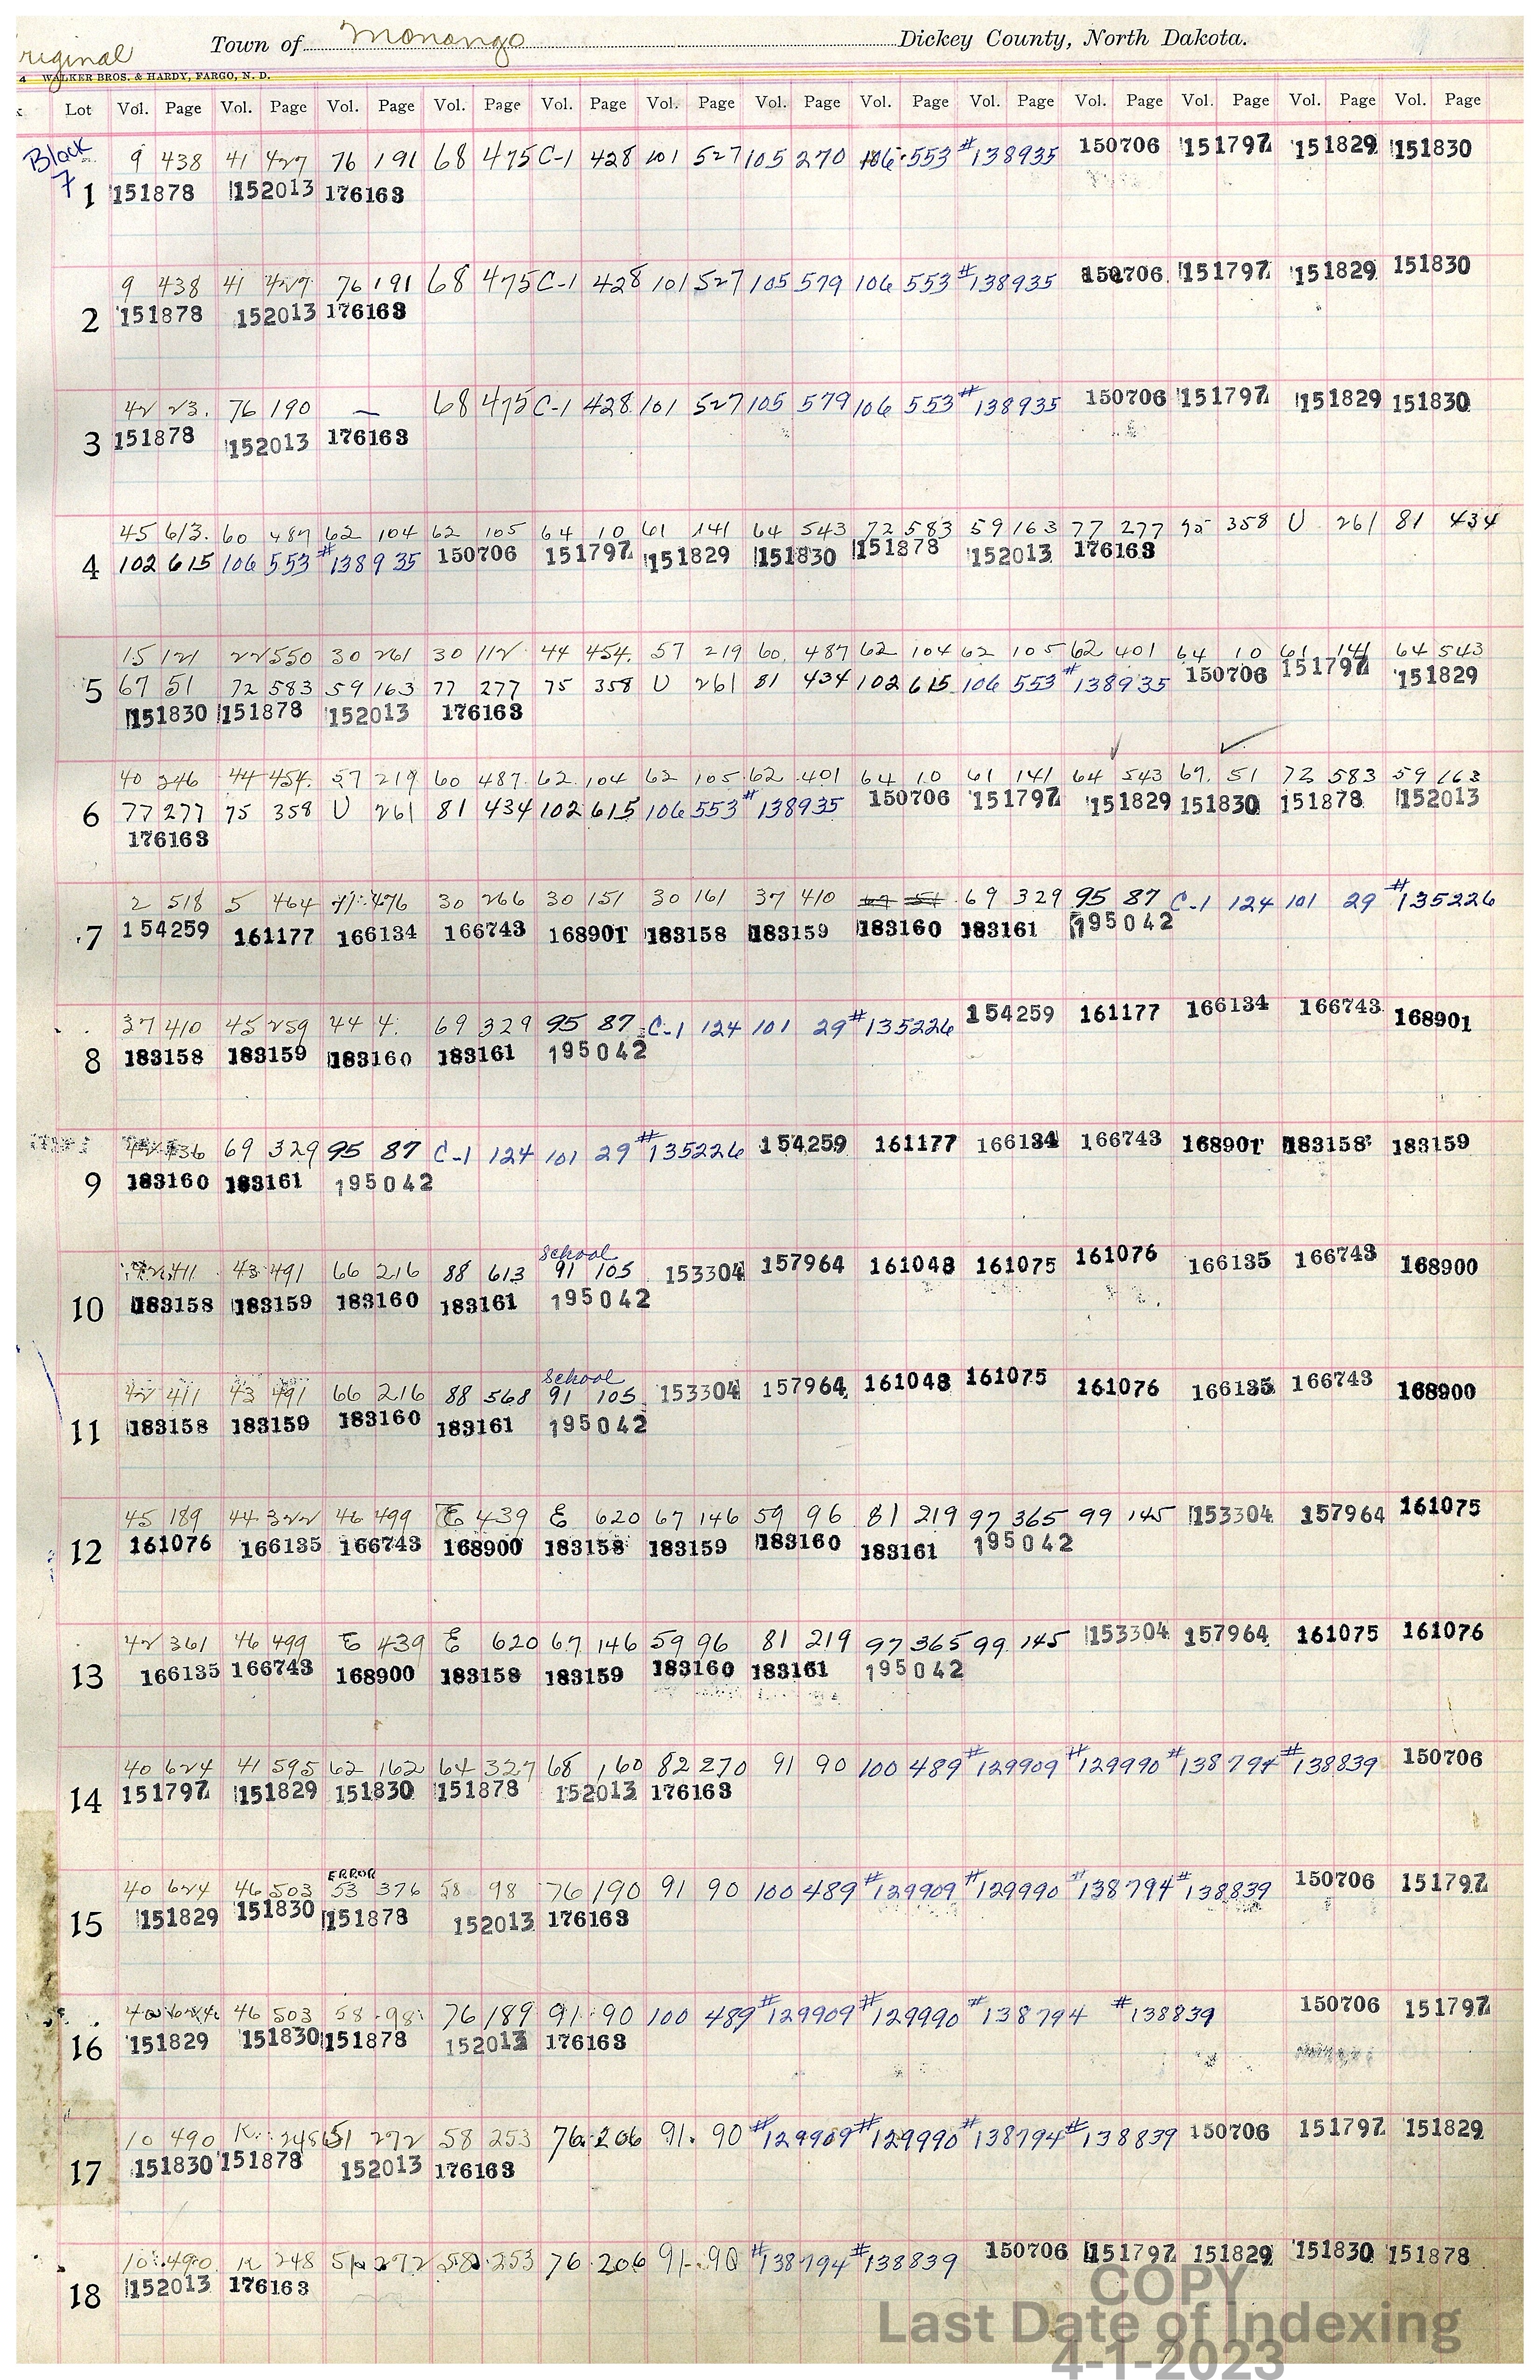 riginal
Town of Monango Dickey County, North Dakota.
4 WALKER BROS. & HARDY, FARGO, N. D.
Lot Vol. Page Vol. Page Vol. Page Vol. Page Vol. Page Vol. Page Vol. Page Vol. Page Vol. Page Vol. Page Vol. Page Vol. Page Vol. Page
Block 7
9 438 41 427 76 191 68 475 C-1 428 101 527 105 270 106 553 #138935 150706 151797 151829 151830
1 151878 152013 176163
9 438 41 427 76 191 68 475 C-1 428 101 527 105 579 106 553 #138935 150706 151797 151829 151830
2 151878 152013 176163
42 23. 76 190 — 68 475 C-1 428 101 527 105 579 106 553 #138935 150706 151797 151829 151830
3 151878 152013 176163
45 613. 60 487 62 104 62 105 64 10 61 141 64 543 72 583 59 163 77 277 75 358 U 261 81 434
4 102 615 106 553 #138935 150706 151797 151829 151830 151878 152013 176163
15 121 22 550 30 261 30 112 44 454. 57 219 60 487 62 104 62 105 62 401 64 10 61 141 64 543
5 67 51 72 583 59 163 77 277 75 358 U 261 81 434 102 615 106 553 #138935 150706 151797 151829
151830 151878 152013 176163
40 346 44 454. 57 219 60 487. 62 104 62 105 62 401 64 10 61 141 64 543 67. 51 72 583 59 163
6 77 277 75 358 U 261 81 434 102 615 106 553 #138935 150706 151797 151829 151830 151878 152013
176163
2 518 5 464 41 476 30 266 30 151 30 161 37 410 69 329 95 87 C-1 124 101 29 #135226
7 154259 161177 166134 166743 168901 183158 183159 183160 183161 195042
37 410 45 259 44 4. 69 329 95 87 C-1 124 101 29 #135226 154259 161177 166134 166743 168901
8 183158 183159 183160 183161 195042
69 329 95 87 C-1 124 101 29 #135226 154259 161177 166134 166743 168901 183158 183159
9 183160 183161 195042
School
42 411 43 491 66 216 88 613 91 105 153304 157964 161048 161075 161076 166135 166743 168900
10 183158 183159 183160 183161 195042
School
42 411 43 491 66 216 88 568 91 105 153304 157964 161048 161075 161076 166135 166743 168900
11 183158 183159 183160 183161 195042
45 189 44 322 46 499 E 439 E 620 67 146 59 96 81 219 97 365 99 145 153304 157964 161075
12 161076 166135 166743 168900 183158 183159 183160 183161 195042
42 361 46 499 E 439 E 620 67 146 59 96 81 219 97 365 99 145 153304 157964 161075 161076
13 166135 166743 168900 183158 183159 183160 183161 195042
40 624 41 595 62 162 64 327 68 160 82 270 91 90 100 489 #129909 #129990 #138794 #138839 150706
14 151797 151829 151830 151878 152013 176163
ERROR
40 624 46 503 53 376 58 98 76 190 91 90 100 489 #129909 #129990 #138794 #138839 150706 151797
15 151829 151830 151878 152013 176163
40 624 46 503 58 98 76 189 91 90 100 489 #129909 #129990 #138794 #138839 150706 151797
16 151829 151830 151878 152013 176163
10 490 K 248 51 272 58 253 76 206 91. 90 #129909 #129990 #138794 #138839 150706 151797 151829
17 151830 151878 152013 176163
10 490 K 248 51 272 58 253 76 206 91 90 #138794 #138839 150706 151797 151829 151830 151878
18 152013 176163
COPY
Last Date of Indexing
4-1-2023